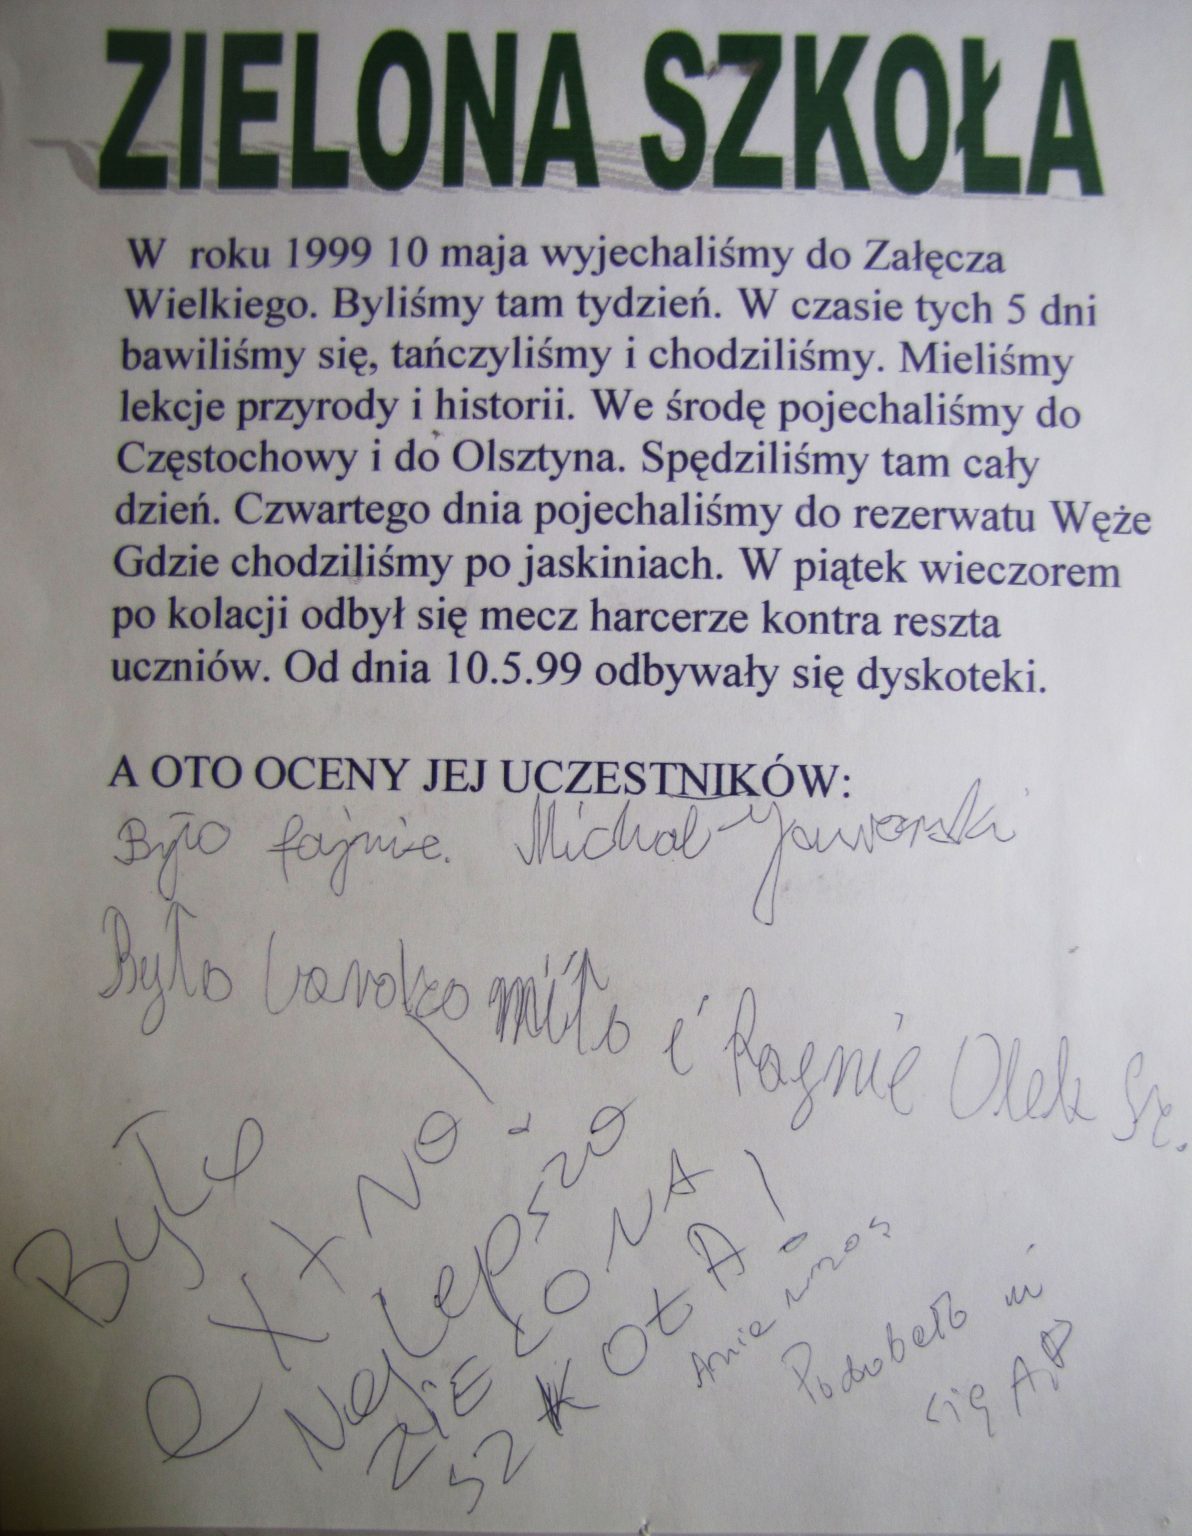 ZIELONA SZKOŁA
W roku 1999 10 maja wyjechaliśmy do Załęcza
Wielkiego. Byliśmy tam tydzień. W czasie tych 5 dni
bawiliśmy się, tańczyliśmy i chodziliśmy. Mieliśmy
lekcje przyrody i historii. We środę pojechaliśmy do
Częstochowy i do Olsztyna. Spędziliśmy tam cały
dzień. Czwartego dnia pojechaliśmy do rezerwatu Węże
Gdzie chodziliśmy po jaskiniach. W piątek wieczorem
po kolacji odbył się mecz harcerze kontra reszta
uczniów. Od dnia 10.5.99 odbywały się dyskoteki.
A OTO OCENY JEJ UCZESTNIKÓW:
Było fajnie. Michał Jaworski
Było bardzo miło i Olek Sz.
Było
extra!
Najlepsza
ZIELONA
SZKOŁA!
Ania
Podobało mi
się